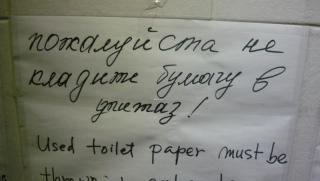 пожалуйста не
кладите бумагу в
унитаз!
Used toilet paper must be
thrown